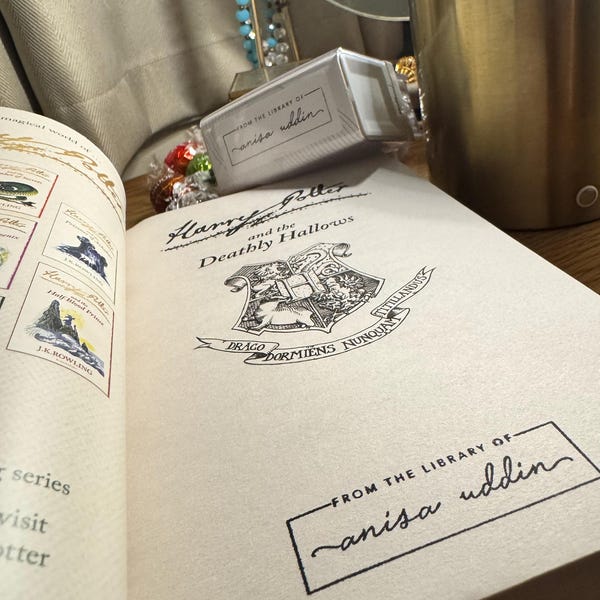 FROM THE LIBRARY OF
anisa uddin
magical world of
Half-Blood Prince
J.K.ROWLING
series
visit
otter
Harry Potter
and the
Deathly Hallows
DRACO DORMIENS NUNQUAM TITILLANDUS
FROM THE LIBRARY OF
anisa uddin